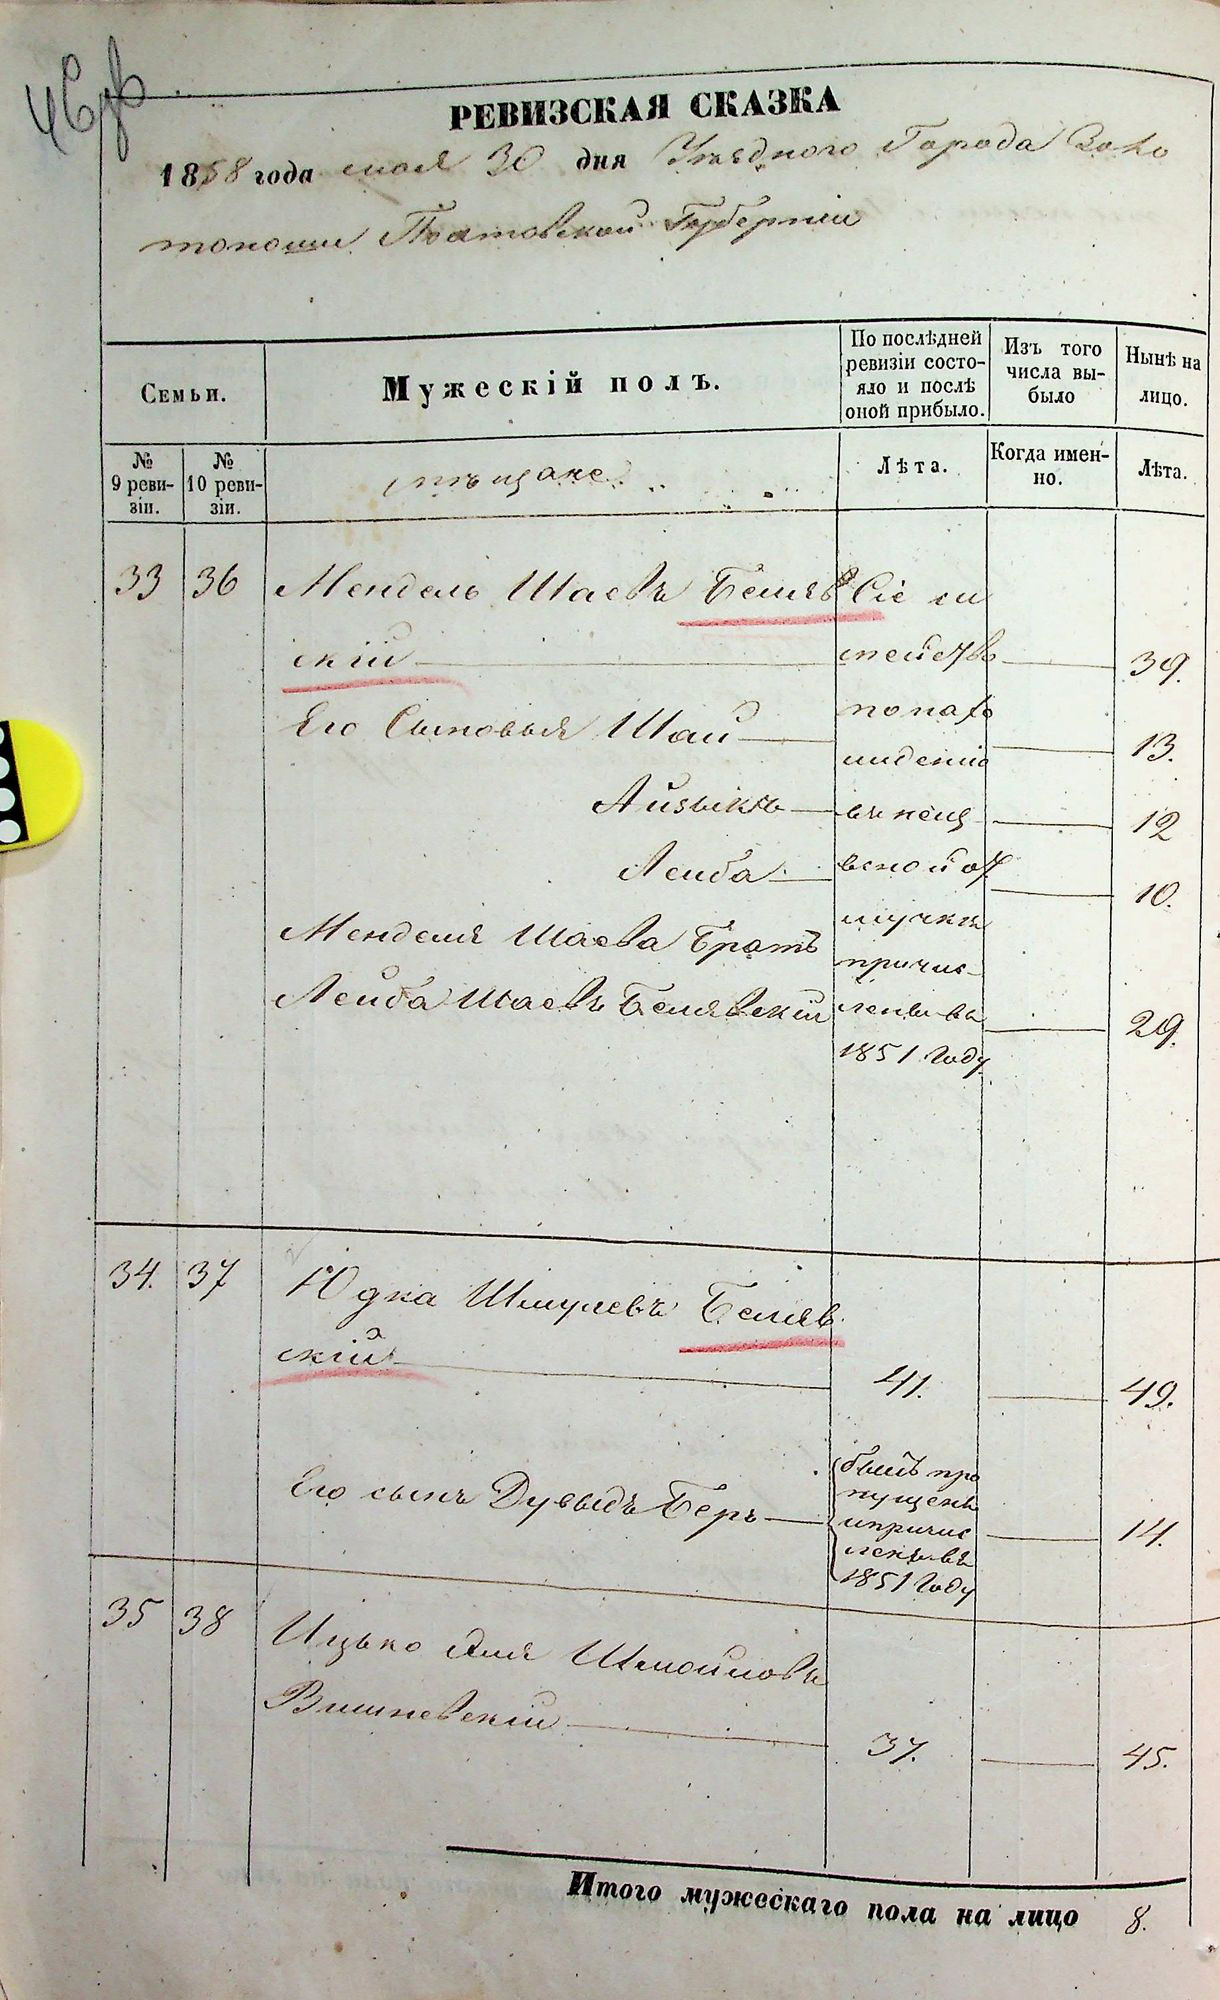 46об
РЕВИЗСКАЯ СКАЗКА
1858 года мая 30 дня Уѣзднаго Города Золо
тоноши Полтовской Губерніи
Семьи.
Мужескій полъ.
По послѣдней ревизіи состо-
яло и послѣ оной прибыло.
Изъ того числа вы-
было
Нынѣ на лицо.
№ 9 реви-
зіи.
№ 10 реви-
зіи.
мѣщане.
Лѣта.
Когда имен-
но.
Лѣта.
33 36 Мендель Шаевъ Беляв Сіе се
скій мейство 39.
Его Сыновья Шаи по нахо 13.
жденію
Айзыкъ въ неиз 12
Лейба вѣсной от 10.
Менделя Шаева Братъ лучкѣ
причис
Лейба Шаевъ Белявскій ленъ въ 29.
1851 году
34. 37 Юдка Шмулевъ Беляв
скій 41. 49.
Его сынъ Дувыдъ Беръ былъ про
пущенъ
и причис 14.
ленъ въ
1851 году
35 38 Ицько Эля Шмойловъ
Вишневскій 37. 45.
Итого мужескаго пола на лицо 8.